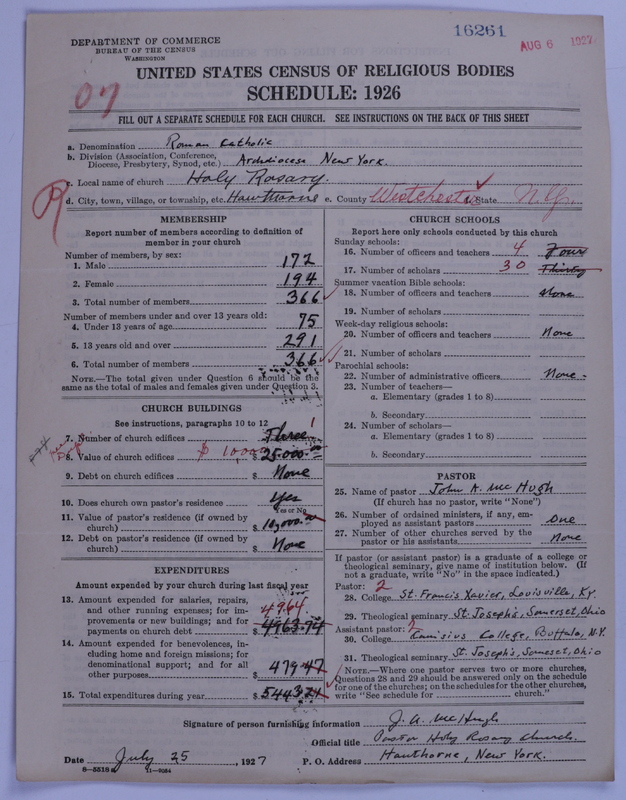 16261
AUG 6 1927
DEPARTMENT OF COMMERCE
BUREAU OF THE CENSUS
WASHINGTON
UNITED STATES CENSUS OF RELIGIOUS BODIES
SCHEDULE: 1926
07
FILL OUT A SEPARATE SCHEDULE FOR EACH CHURCH. SEE INSTRUCTIONS ON THE BACK OF THIS SHEET
a. Denomination Roman Catholic
b. Division (Association, Conference, Diocese, Presbytery, Synod, etc.) Archdiocese New York.
c. Local name of church Holy Rosary.
d. City, town, village, or township, etc. Hawthorne e. County Westchester State N.Y.
R
MEMBERSHIP
Report number of members according to definition of
member in your church
Number of members, by sex:
1. Male 172
2. Female 194
3. Total number of members 366
Number of members under and over 13 years old:
4. Under 13 years of age 75
5. 13 years old and over 291
6. Total number of members 366
NOTE.—The total given under Question 6 should be the
same as the total of males and females given under Question 3.
CHURCH BUILDINGS
See instructions, paragraphs 10 to 12
7. Number of church edifices Three 1
8. Value of church edifices $ 10,000 $ 25,000.00
9. Debt on church edifices $ None
10. Does church own pastor's residence Yes
Yes or No
11. Value of pastor's residence (if owned by
church) $ 10,000.00
12. Debt on pastor's residence (if owned by
church) $ None
EXPENDITURES
Amount expended by your church during last fiscal year
13. Amount expended for salaries, repairs,
and other running expenses; for im-
provements or new buildings; and for
payments on church debt 4964 $ 4963.74
14. Amount expended for benevolences, in-
cluding home and foreign missions; for
denominational support; and for all
other purposes $ 479.47
15. Total expenditures during year $ 5443.21
CHURCH SCHOOLS
Report here only schools conducted by this church
Sunday schools:
16. Number of officers and teachers 4 Four
17. Number of scholars 30 Thirty
Summer vacation Bible schools:
18. Number of officers and teachers None
19. Number of scholars
Week-day religious schools:
20. Number of officers and teachers None
21. Number of scholars
Parochial schools:
22. Number of administrative officers None
23. Number of teachers—
a. Elementary (grades 1 to 8)
b. Secondary
24. Number of scholars—
a. Elementary (grades 1 to 8)
b. Secondary
PASTOR
25. Name of pastor John A. McHugh
(If church has no pastor, write "None")
26. Number of ordained ministers, if any, em-
ployed as assistant pastors One
27. Number of other churches served by the
pastor or his assistants None
If pastor (or assistant pastor) is a graduate of a college or
theological seminary, give name of institution below. (If
not a graduate, write "No" in the space indicated.)
Pastor: 2
28. College St. Francis Xavier, Louisville, Ky.
29. Theological seminary St. Joseph's, Somerset, Ohio
Assistant pastor: 2
30. College Canisius College, Buffalo, N.Y.
31. Theological seminary St. Joseph's, Somerset, Ohio
NOTE.—Where one pastor serves two or more churches,
Questions 28 and 29 should be answered only on the schedule
for one of the churches; on the schedules for the other churches,
write "See schedule for church."
Signature of person furnishing information J. A. McHugh
Official title Pastor Holy Rosary Church.
Date July 25, 1927 P. O. Address Hawthorne, New York.
8—5518a 11—9034